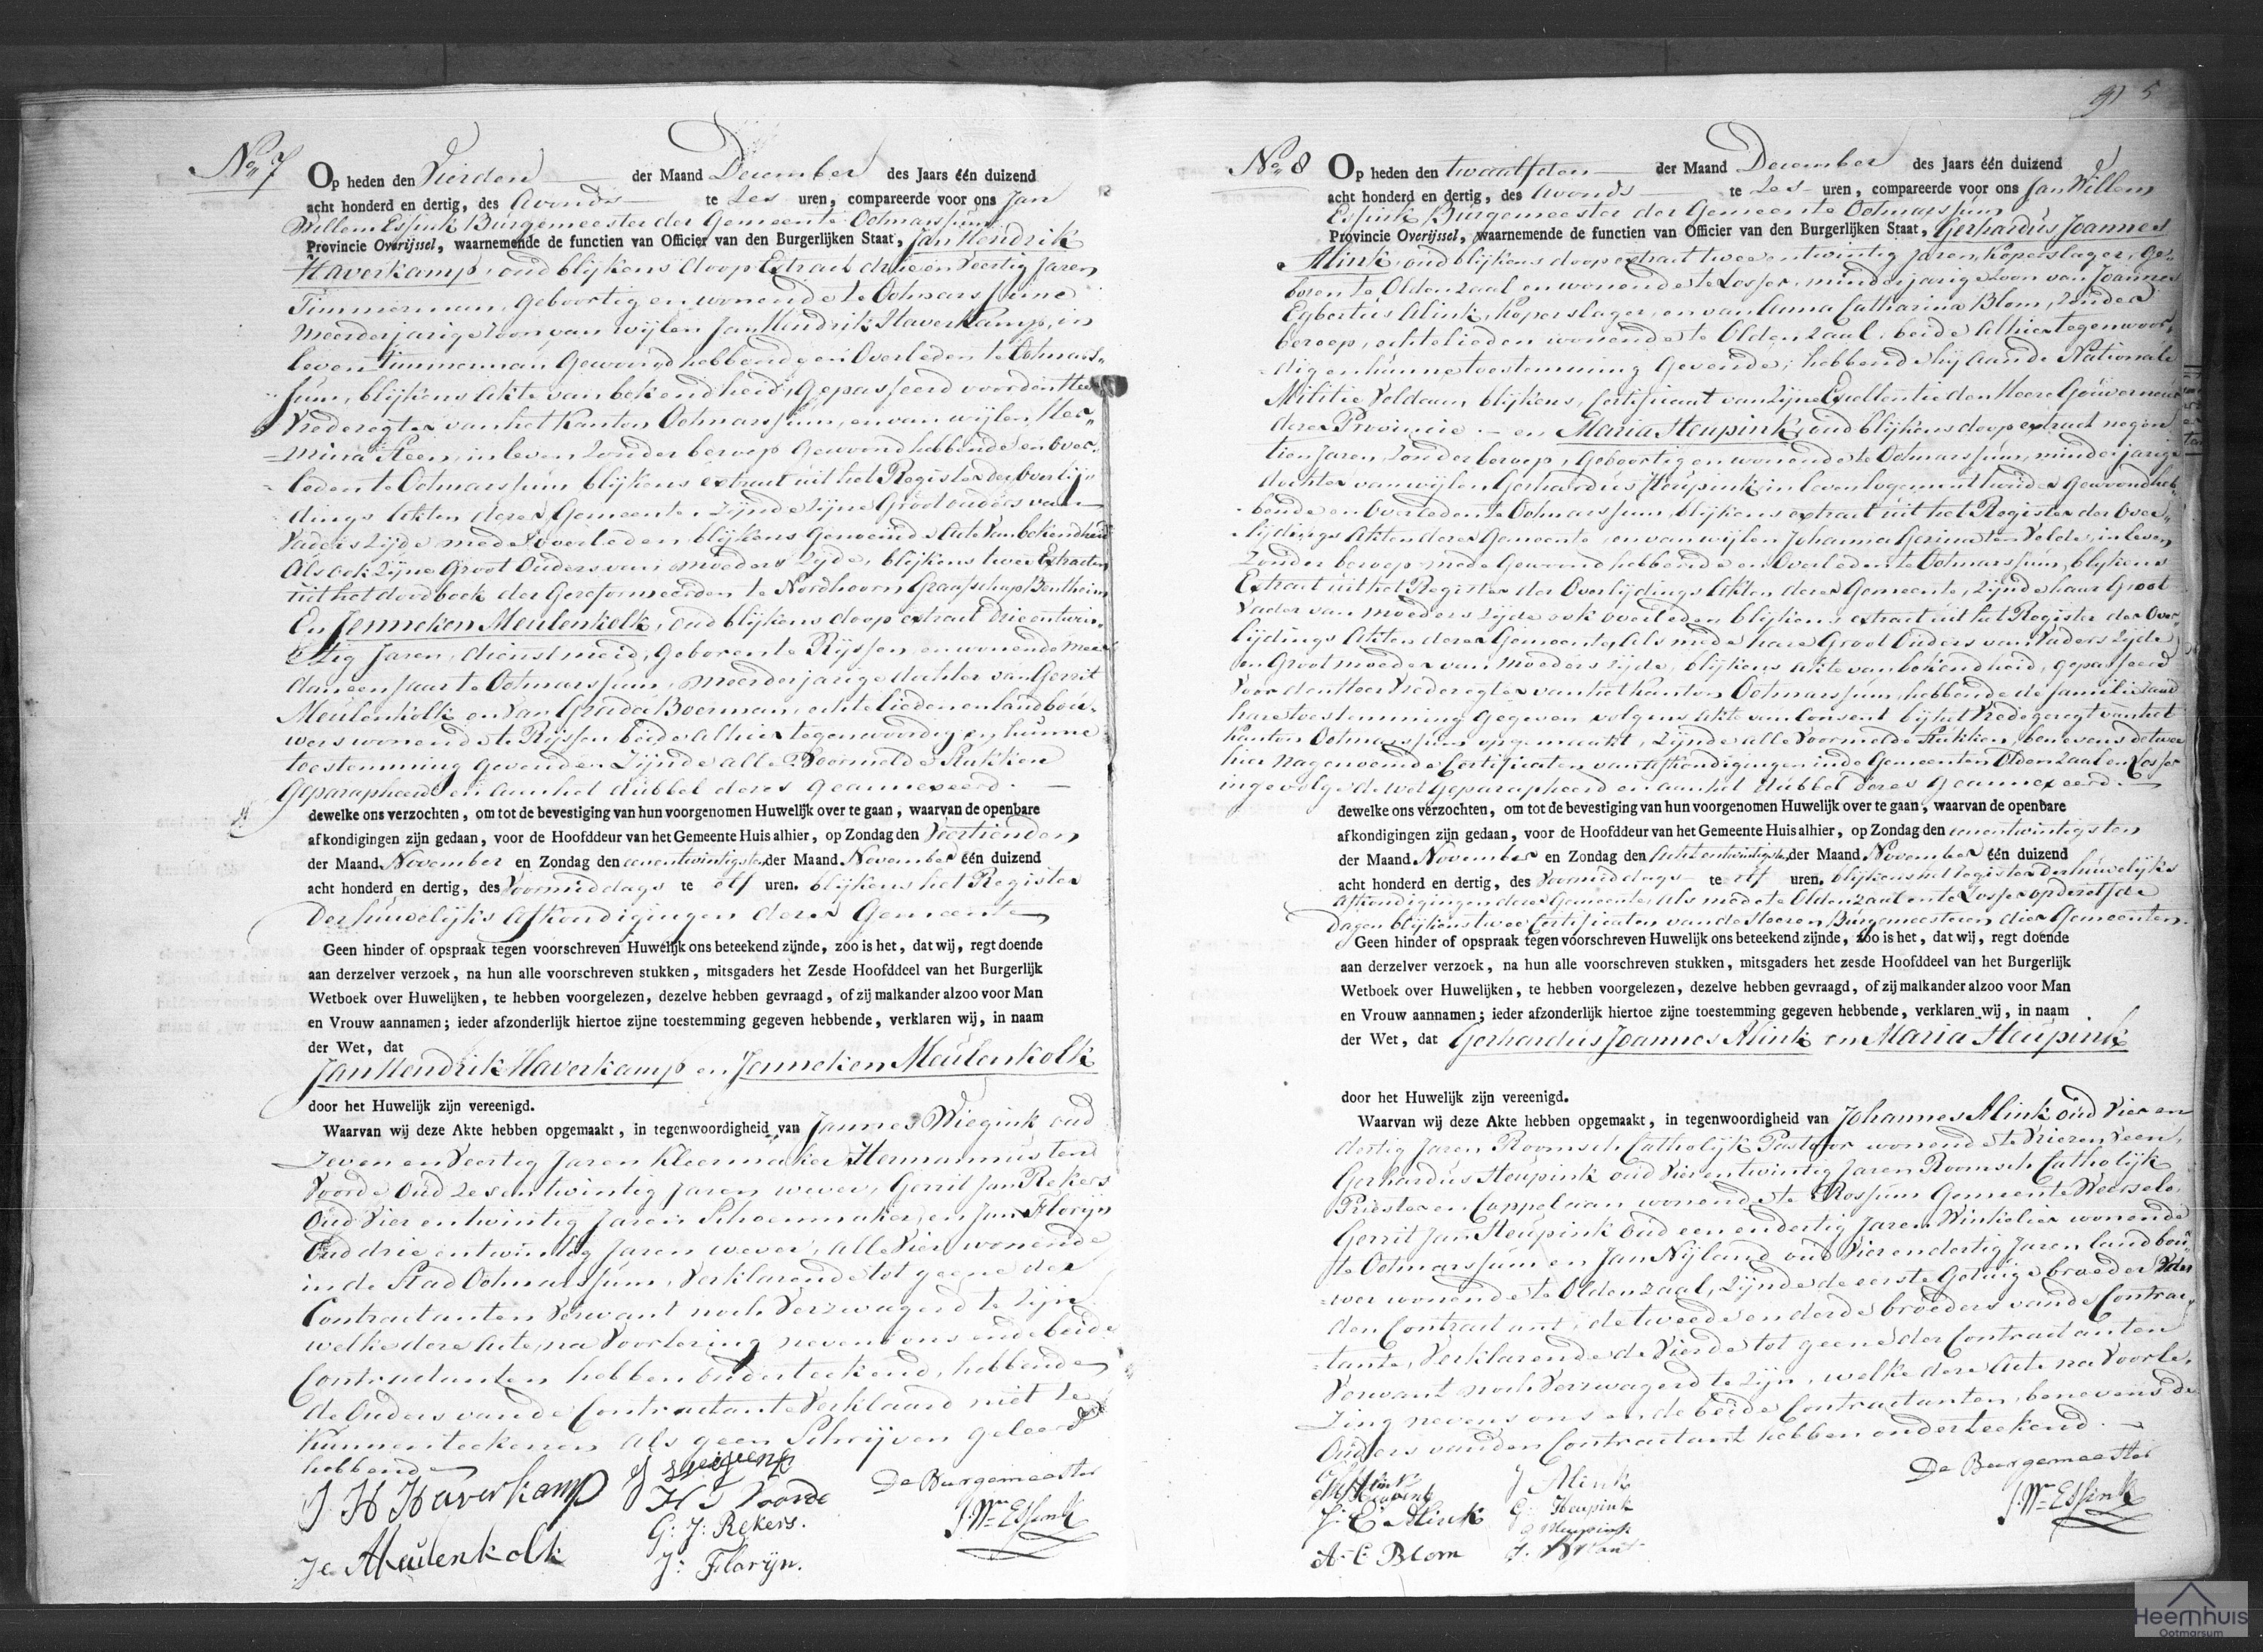 No 7
Op heden den Vierden der Maand December des Jaars één duizend
acht honderd en dertig, des Avonds te Zes uren, compareerde voor ons Jan
Willem Essink Burgemeester der Gemeente Ootmarssum
Provincie Overijssel, waarnemende de functien van Officier van den Burgerlijken Staat, Jan Hendrik
Haverkamp, oud blijkens doop Extract drie en Veertig Jaren
Timmerman, geboortig en wonende te Ootmarssum
meerderjarige Zoon van wijlen Jan Hendrik Haverkamp, in
leven Timmerman Gewoond hebbende en Overleden te Ootmars-
sum, blijkens Akte van bekendheid, gepasseerd voor den Heer
Vrederegter van het Kanton Ootmarssum, en van wijlen Her-
mina Steen, in leven Zonder beroep Gewoond hebbende en over-
leden te Ootmarssum blijkens extract uit het Register der Overlij-
dings Akten dezer Gemeente, Zijnde Zijne Grootouders van
Vaders Zijde mede overleden blijkens Genoemde Acte van bekendheid
Als ook Zijne Groot Ouders van moeders Zijde, blijkens twee Extracten
uit het doodboek der Gereformeerden te Nordhoorn Graafschap Bentheim
En Jenneken Meulenkolk, oud blijkens doop extract Drie entwin-
tig Jaren, dienstmeid, geboren te Rijssen, en wonende meer
dan een Jaar te Ootmarssum, meerderjarige dochter van Gerrit
Meulenkolk en van Grada Boerman, echtelieden en landbou-
wers wonende te Rijssen beide alhier tegenwoordig en hunne
toestemming gevende. Zijnde alle Voormelde Stukken
Geparapheerd en aan het dubbel dezes geannexeerd.
dewelke ons verzochten, om tot de bevestiging van hun voorgenomen Huwelijk over te gaan, waarvan de openbare
afkondigingen zijn gedaan, voor de Hoofddeur van het Gemeente Huis alhier, op Zondag den Veertienden
der Maand November en Zondag den eenentwintigsten der Maand November één duizend
acht honderd en dertig, des Voormiddags te elf uren. blijkens het Register
Der huwelijks Afkondigingen dezer Gemeente
Geen hinder of opspraak tegen voorschreven Huwelijk ons beteekend zijnde, zoo is het, dat wij, regt doende
aan derzelver verzoek, na hun alle voorschreven stukken, mitsgaders het Zesde Hoofddeel van het Burgerlijk
Wetboek over Huwelijken, te hebben voorgelezen, dezelve hebben gevraagd, of zij malkander alzoo voor Man
en Vrouw aannamen; ieder afzonderlijk hiertoe zijne toestemming gegeven hebbende, verklaren wij, in naam
der Wet, dat
Jan Hendrik Haverkamp en Jenneken Meulenkolk
door het Huwelijk zijn vereenigd.
Waarvan wij deze Akte hebben opgemaakt, in tegenwoordigheid van Jannes Wiegink oud
Zeven en Veertig Jaren Kleermaker, Hermannus ten
Voorde Oud Zesentwintig Jaren wever, Gerrit Jan Rekers
Oud Vier entwintig Jaren Schoenmaker, en Jan Florijn
Oud drie entwintig Jaren wever, alle Vier wonende
in de Stad Ootmarssum, Verklarende tot geene der
Contractanten Verwant noch Verzwagerd te zijn
welke deze Acte, na Voorlezing nevens ons en de beide
Contractanten hebben onderteekend, hebbende
de Ouders van de Contractante Verklaard niet te
kunnen teekenen als geen Schrijven geleerd
hebbende
J H Haverkamp
H T Voorde De Burgemeester
G: J: Rekers. J. Wm Essink
Je Meulenkolk J: Florijn.
5
No 8
Op heden den twaalfden der Maand December des Jaars één duizend
acht honderd en dertig, des Avonds te Zes uren, compareerde voor ons Jan Willem
Essink Burgemeester der Gemeente Ootmarssum
Provincie Overijssel, waarnemende de functien van Officier van den Burgerlijken Staat, Gerhardus Joannes
Alink, oud blijkens doop extract twee entwintig Jaren, Koperslager, Ge-
boren te Oldenzaal en wonende te Losser, minderjarige Zoon van Joannes
Egbertus Alink, Koperslager, en van Anna Catharina Blom, Zonder
beroep, echtelieden wonende te Oldenzaal, beide Alhier tegenwoor-
dig en hunne toestemming Gevende; hebbende hij aan de Nationale
Militie Voldaan, blijkens, certificaat van Zijne Excellentie den Heere Gouverneur
dezer Provincie. — en Maria Heupink, oud blijkens doop extract negen
tien Jaren, Zonder beroep, Geboortig en wonende te Ootmarssum, minderjarige
dochter van wijlen Gerhardus Heupink in leven logementhouder Gewoond heb-
bende en Overleden te Ootmarssum, blijkens extract uit het Register der Over-
lijdings Akten dezer Gemeente, en van wijlen Johanna Gerina ten Velde, in leven
Zonder beroep mede Gewoond hebbende en Overleden te Ootmarssum, blijkens
Extract uit het Register der Overlijdings Akten dezer Gemeente, Zijnde haar Groot
Vader van moeders Zijde ook overleden blijkens extract uit het Register der Over-
lijdings Akten dezer Gemeente, Als mede hare Groot Ouders van Vaders Zijde
en Grootmoeder van Moeders Zijde, blijkens Akte van bekendheid, gepasseerd
Voor den Heer Vrederegter van het Kanton Ootmarssum, hebbende de familieraad
hare toestemming Gegeven volgens Akte van Consent bij het Vredegeregt van het
Kanton Ootmarssum opgemaakt, Zijnde alle Voormelde Stukken, benevens de twee
hier nagenoemde Certificaten van afkondigingen in de Gemeenten Oldenzaal en Losser
ingevolge de wet geparapheerd en aan het dubbel dezes geannexeerd.
dewelke ons verzochten, om tot de bevestiging van hun voorgenomen Huwelijk over te gaan, waarvan de openbare
afkondigingen zijn gedaan, voor de Hoofddeur van het Gemeente Huis alhier, op Zondag den eenentwintigsten
der Maand November en Zondag den Achtentwintigsten der Maand November één duizend
acht honderd en dertig, des Voormiddags te elf uren. blijkens het register der huwelijks
Afkondigingen dezer Gemeente, als mede te Oldenzaal en te Losser op dezelfde
Dagen blijkens twee Certificaten van de Heeren Burgemeesteren dier Gemeenten.
Geen hinder of opspraak tegen voorschreven Huwelijk ons beteekend zijnde, zoo is het, dat wij, regt doende
aan derzelver verzoek, na hun alle voorschreven stukken, mitsgaders het zesde Hoofddeel van het Burgerlijk
Wetboek over Huwelijken, te hebben voorgelezen, dezelve hebben gevraagd, of zij malkander alzoo voor Man
en Vrouw aannamen; ieder afzonderlijk hiertoe zijne toestemming gegeven hebbende, verklaren wij, in naam
der Wet, dat Gerhardus Joannes Alink en Maria Heupink
door het Huwelijk zijn vereenigd.
Waarvan wij deze Akte hebben opgemaakt, in tegenwoordigheid van Johannes Alink oud Vier en
dertig Jaren Roomsch Catholijk Pastoor wonende te Vriezenveen,
Gerhardus Heupink oud Vier entwintig Jaren Roomsch Catholijk
Priester en Cappelaan wonende te Rossum Gemeente Weerselo,
Gerrit Jan Heupink oud een en dertig Jaren Winkelier wonende
te Ootmarssum en Jan Nijland oud Vier en dertig Jaren landbou-
wer wonende te Oldenzaal, Zijnde de eerste Getuige broeder Van
den Contractant, de tweede en derde broeders van de Contrac-
tante, Verklarende de Vierde tot geene der Contractanten
Verwant noch Verzwagerd te Zijn, welke deze Acte na Voorle-
zing nevens ons en de beide Contractanten, benevens de
Ouders van den Contractant hebben onderteekend.
J Alink De Burgemeester
M Heupink G: Heupink J. Wm Essink
J: E Alink
A: C Blom
Heemhuis
Ootmarsum